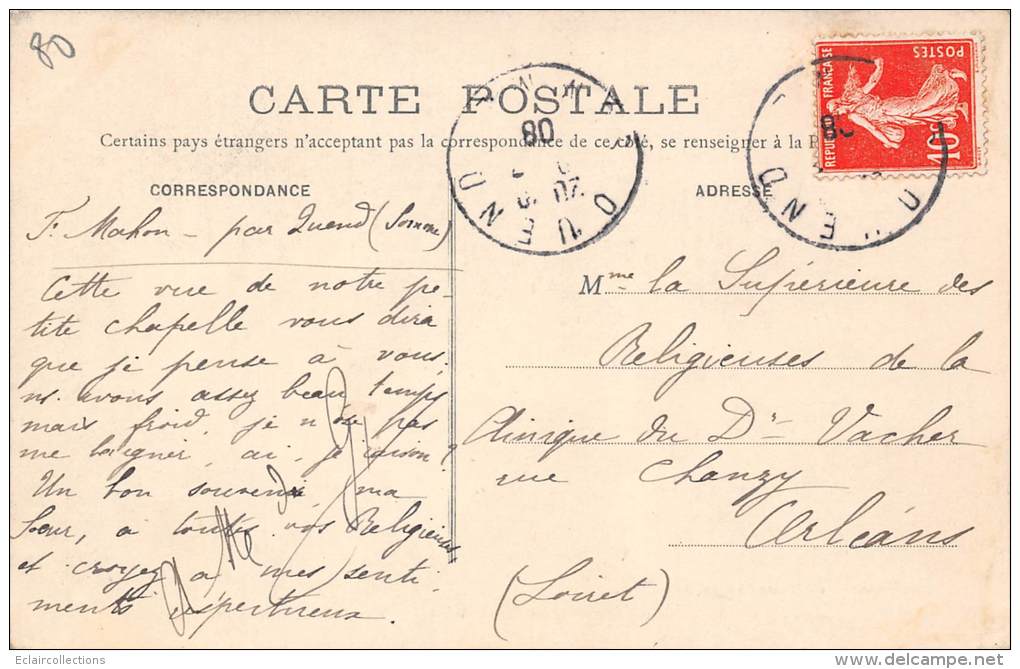 80
CARTE POSTALE
Certains pays étrangers n'acceptant pas la correspondance de ce côté, se renseigner à la
CORRESPONDANCE
ADRESSE
REPUBLIQUE FRANÇAISE
POSTES
10c
QUEND
80
07
QUEND
80
F. Mahon - par Quend (Somme)
Cette vue de notre pe-
tite chapelle vous dira
que je pense à vous,
ns. avons assez beau temps
mais froid, je n'ose pas
me baigner, ai-je raison?
Un bon souvenir ma
Soeur, à toutes vos Religieuses
et croyez à mes senti
ments respectueux
Mme la Supérieure des
Religieuses de la
Clinique du Dr Vacher
rue Chanzy
Orléans
(Loiret)
Eclaircollections